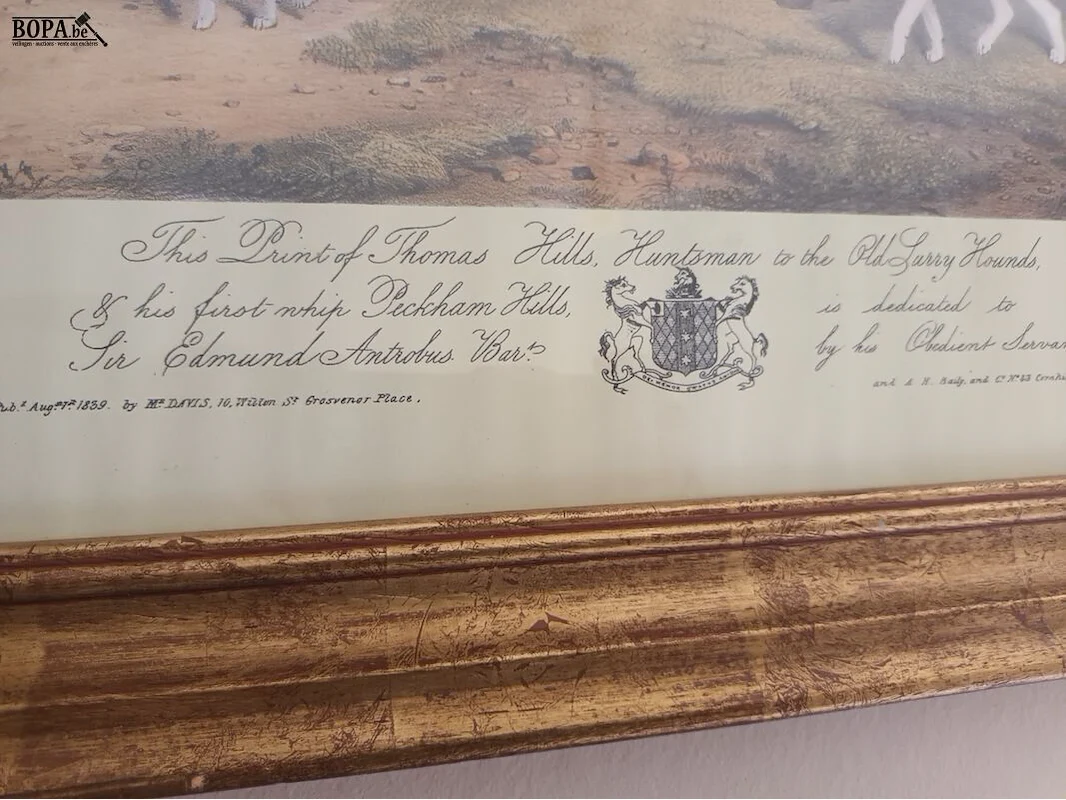 BOPA.be
veilingen - auctions - vente aux enchères
This Print of Thomas Hills, Huntsman to the Old Surry Hounds,
& his first whip Peckham Hills, is dedicated to
Sir Edmund Antrobus Bart. by his Obedient Servan
Pub.d Aug.st 7th 1839. by Mr. DAVIS, 10, Wilton St. Grosvenor Place,
and A. H. Baily, and Co. No. 83 Cornhi